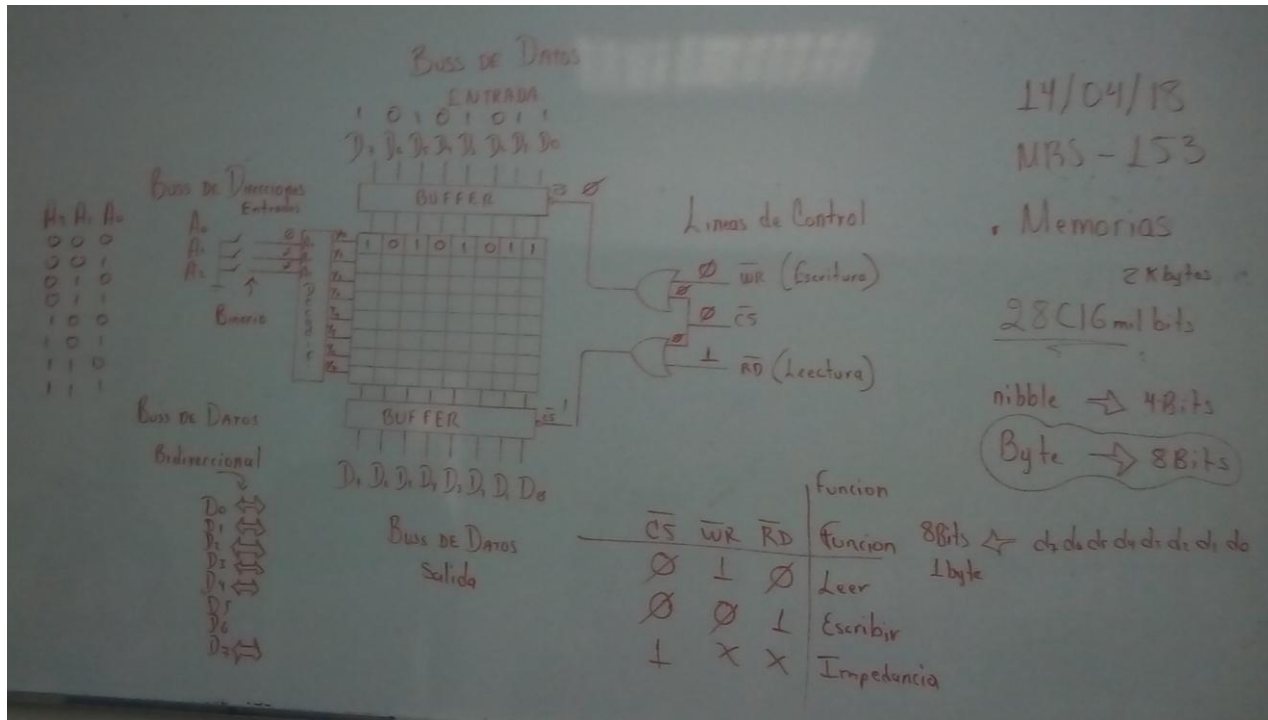 Buss de Datos
ENTRADA
1 0 1 0 1 0 1 1
BUFFER
Buss de Direcciones
Entradas
A2 A1 A0
0 0 0
0 0 1
0 1 0
0 1 1
1 0 0
1 0 1
1 1 0
1 1 1
A0
A1
A2
Binario
1 0 1 0 1 0 1 1
BUFFER
CS
1
Buss de Datos
Salida
Buss de Datos
Bidireccional
D0
D1
D2
D3
D4
D5
D6
D7
Lineas de Control
Ø WR (Escritura)
Ø
Ø CS
Ø
1 RD (Leectura)
CS WR RD
funcion
Funcion
Ø 1 Ø Leer
Ø Ø 1 Escribir
1 X X Impedancia
14/04/18
MBS-153
. Memorias
2 Kbytes
28C16 mil bits
nibble ⇨ 4Bits
Byte ⇨ 8Bits
8Bits ⇦ d7 d6 d5 d4 d3 d2 d1 d0
1byte